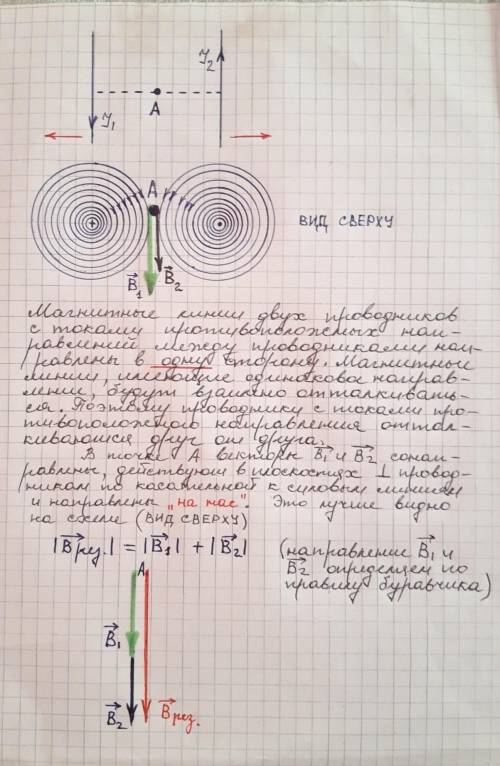 I₂
A
I₁
A
ВИД СВЕРХУ
B₁ B₂
Магнитные линии двух проводников
с токами противоположных нап-
равлений между проводниками нап-
равлены в одну сторону. Магнитные
линии, имеющие одинаковое направ-
ление, будут взаимно отталкивать-
ся. Поэтому проводники с токами про-
тивоположного направления оттал-
киваются друг от друга.
В точке А векторы B₁ и B₂ сонап-
равлены, действуют в плоскостях ⊥ провод-
никам по касательной к силовым линиям
и направлены "на нас". Это лучше видно
на схеме (ВИД СВЕРХУ)
|B рез.| = |B₁| + |B₂|
(направление B₁ и
B₂ определяем по
правилу буравчика)
A
B₁
B₂ B рез.